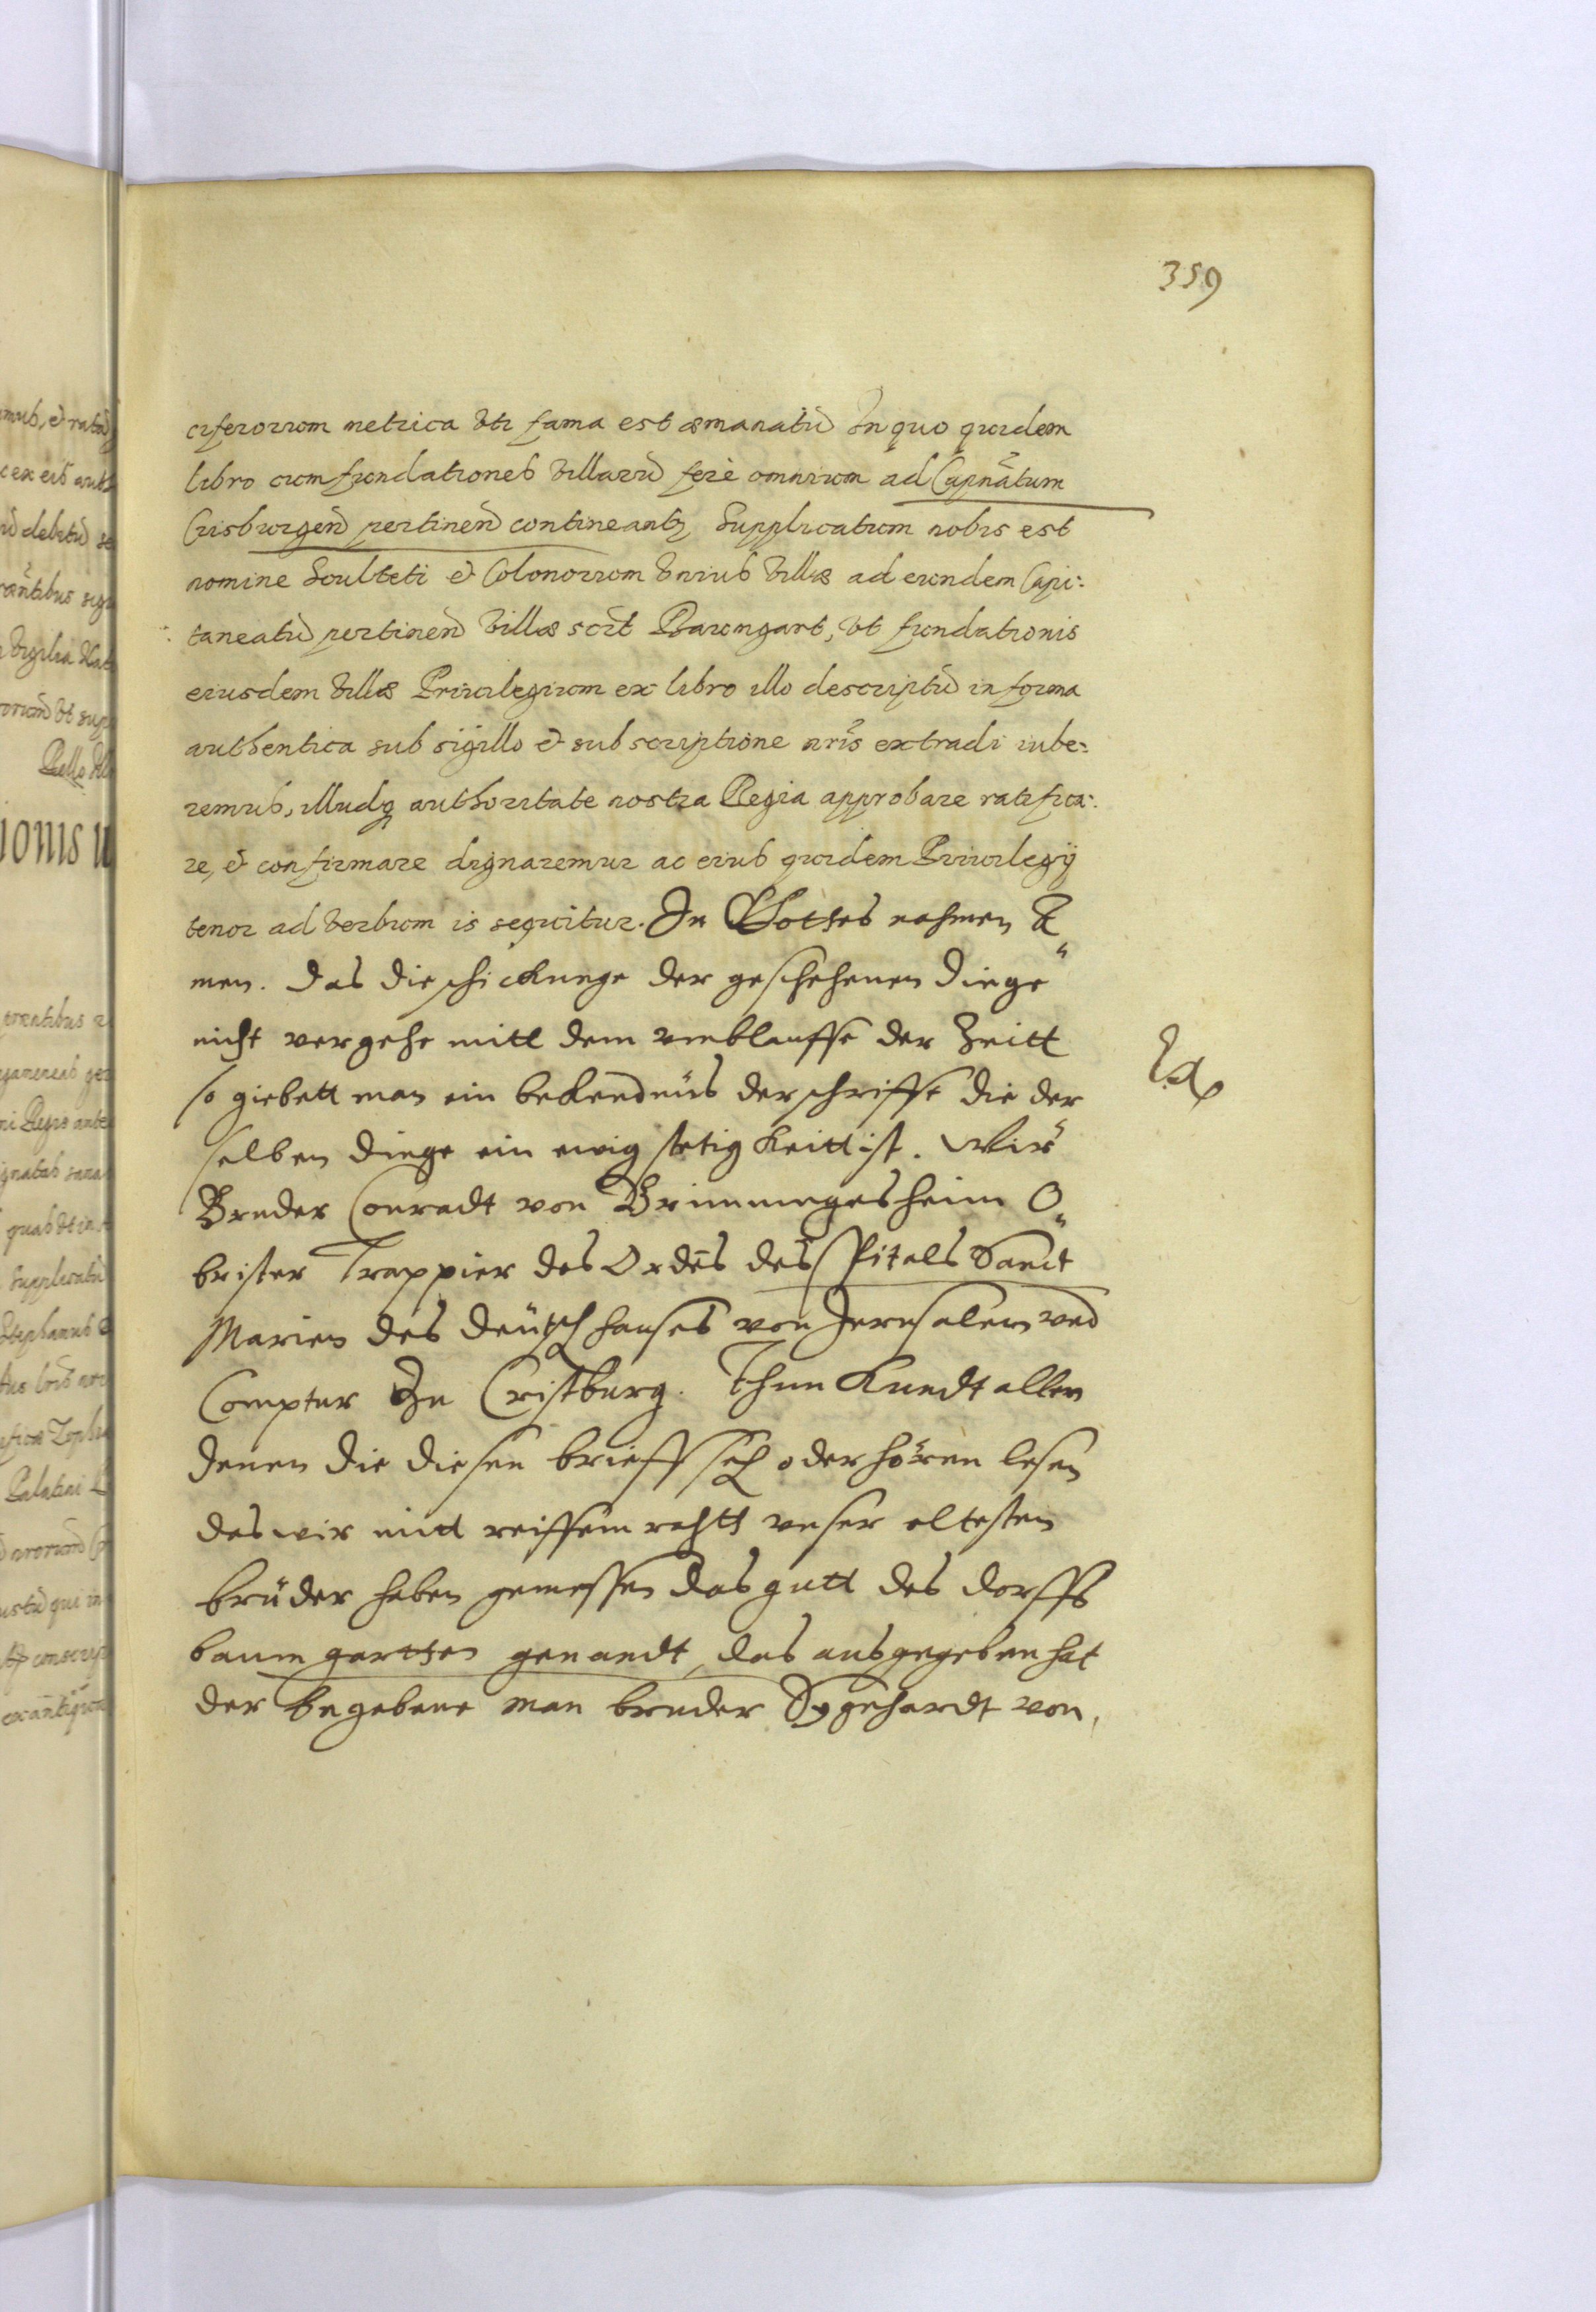 359
ciferorum metrica uti fama est æmanatũ In quo quidem
libro cum fundationes villarũ ferè omnium ad Capnãtum
Crisburgeñ pertineñ contineantʒ Supplicatum nobis est
nomine Sculteti & Colonorum unius villæ ad eundem Capi:
taneatũ pertineñ villæ scit Baumgart, vt fundationis
eiusdem villæ Priuilegium ex libro illo descriptũ in forma
authentica sub sigillo & subscriptione nr̃is extradi iube:
remus, illudq authoritate nostra Regia approbare ratifica:
re, & confirmare dignaremur ac eius quidem Priuilegÿ
tenor ad verbum is sequitur. In Gottes nahmen A
men. Das die schickunge der geschehenen Dinge
nicht vergehe mitt dem vmblauffe der Zeitt
so giebett man ein bekendnüs der schrifft die der
selben dinge ein ewig stetig keitt ist. Wir
Bruder Conradt von Brunungesheim O
brister Trappier des Ordẽs des Spitals Sanct
Marien des deütsch hauses von Jerusalem vnd
Comptur Zu Cristburg. Thun kundt allen
denen die diesen brieff seh oder hören lesen
das wir mitt reiffem rahtt vnser eltesten
brüder haben gemessen das gutt des dorffs
baumgartten genandt, das ausgegeben hat
der begebene man bruder Sygehardt von